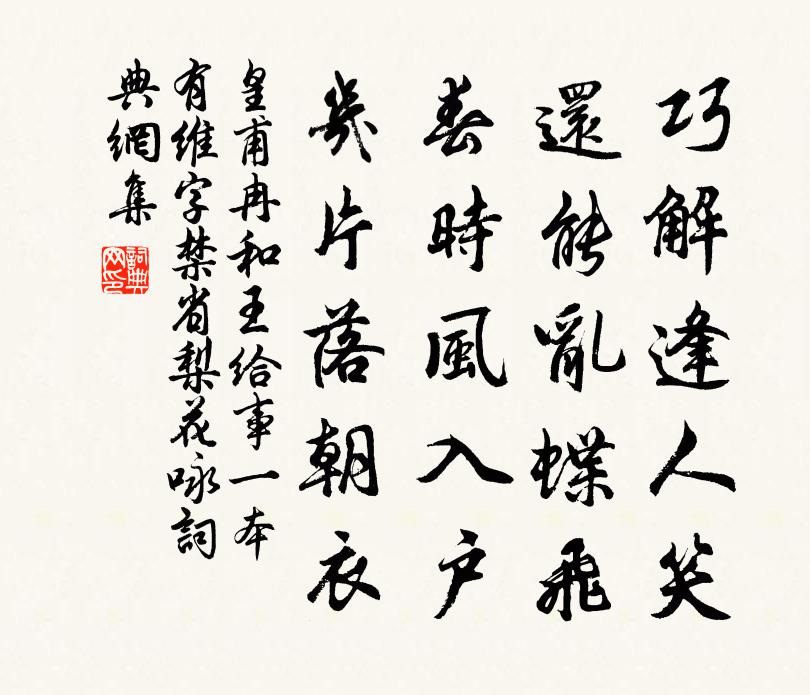 巧解逢人笑
還能亂蝶飛
春時風入户
幾片落朝衣
皇甫冉和王給事一本
有維字禁省梨花咏詞
典網集
詞典網印